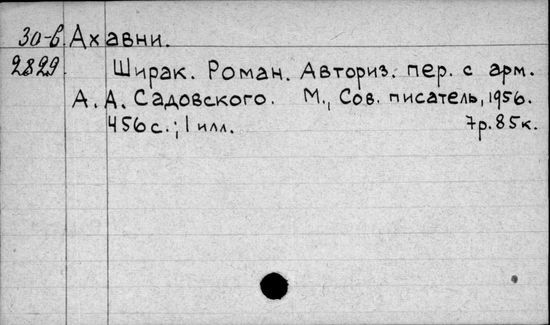 30-в Ахавни.
2829 Ширак. Роман. Авториз. пер. с арм.
А. А. Садовского. М., Сов. писатель, 1956.
456 с.; 1 илл. 7р. 85к.